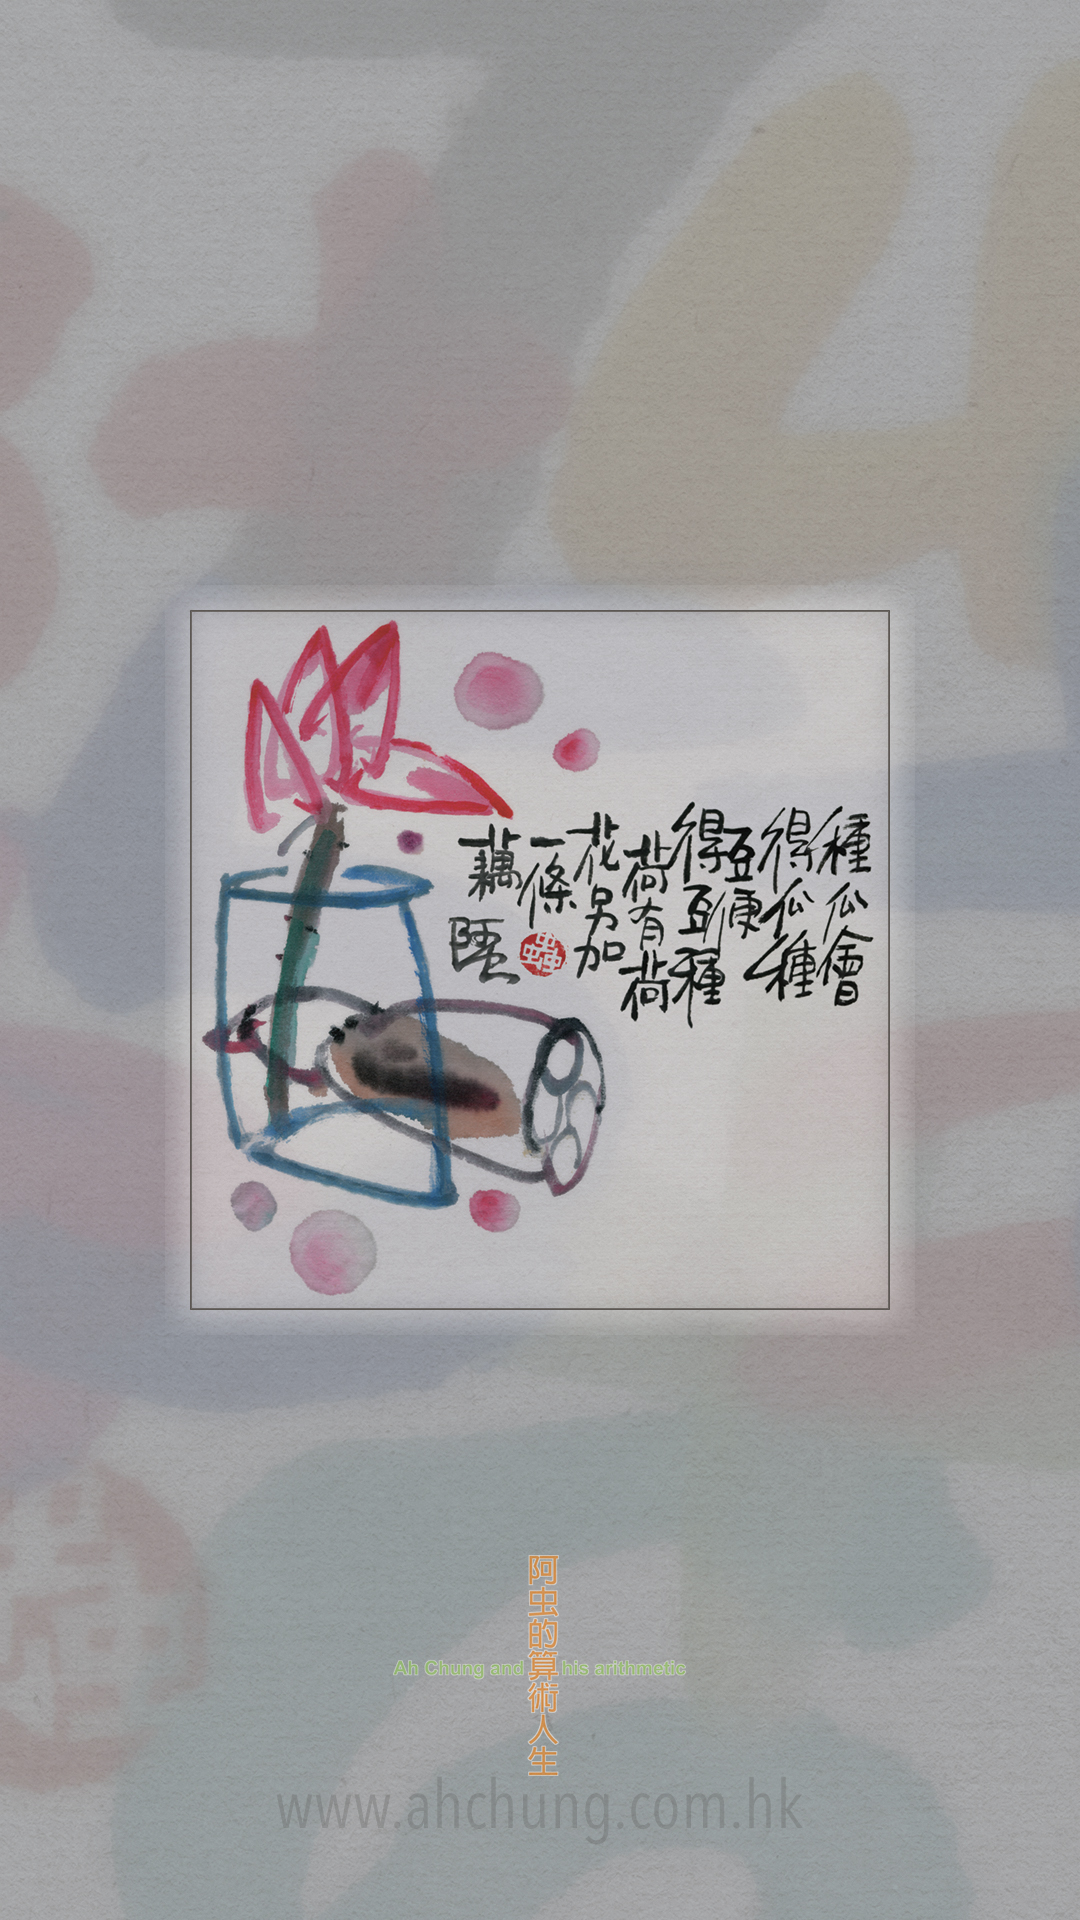 種瓜會
得瓜種
豆便
得豆種
荷有荷
花另加
一條
藕
蟲
阿虫的算術人生
Ah Chung and his arithmetic
www.ahchung.com.hk